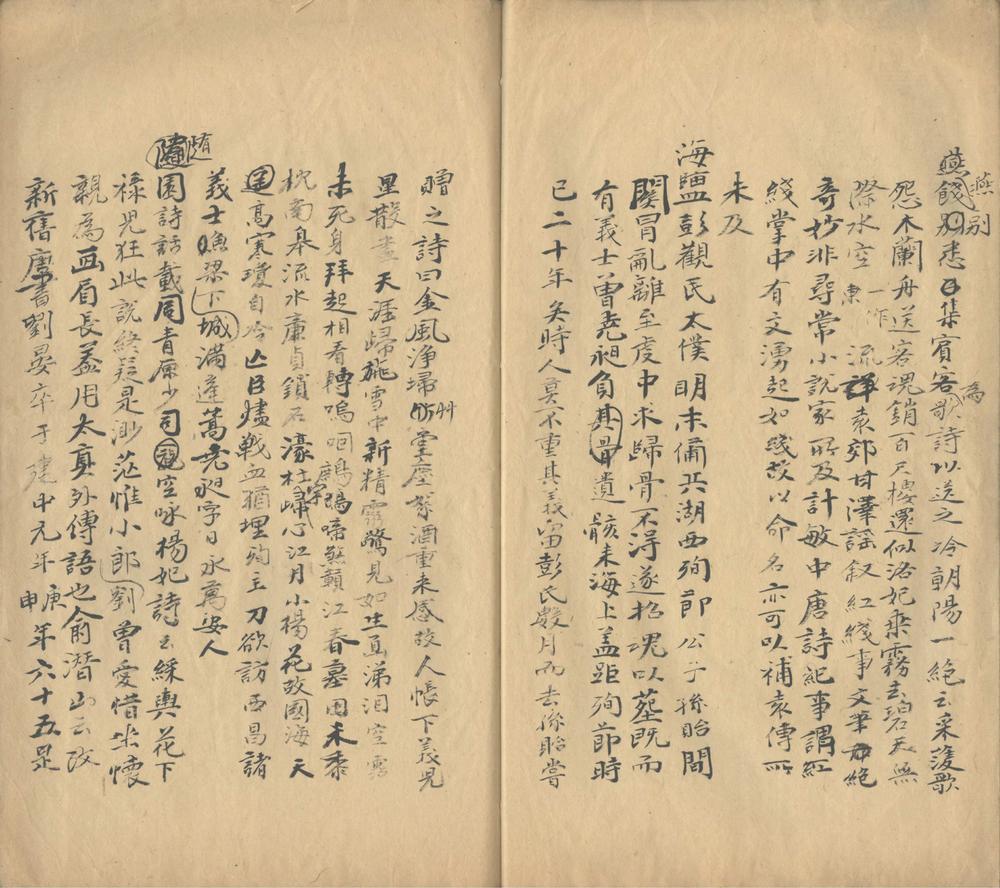 燕别
燕餞别悉集賓客歌詩以送之冷朝陽一絶云采菱歌
為
怨木蘭舟送客魂銷百尺樓還似洛妃乘霧去碧天無
際水空流
一作東
袁郊甘澤謡叙紅綫事文筆絶
奇妙非尋常小說家所及計敏中唐詩紀事謂紅
綫掌中有文湧起如綫故以命名亦可以補袁傳所
未及
海鹽彭觀民太僕明末備兵湖西殉節公子孫貽間
關冒亂離至虔中求歸骨不得遂招魂以葬既而
有義士曾堯昶負其骨遺骸來海上盖距殉節時
已二十年矣時人莫不重其義留彭氏數月而去孫貽嘗
贈之詩曰金風浄埽臺塵絮酒重来感故人帳下義兒
星散盡天涯歸旐雪中新精靈驚見如生面涕泪空霑
未死身拜起相看轉嗚咽鷓鴣啼煞贛江春墓田禾黍
枕南皋流水廉貞鎖石濠杜宇歸心江月小楊花故國海天
高寒瓊自冷亡日燼戰血猶埋殉主刀欲訪西昌諸
義士漁梁城下滿蓬蒿堯昶字日永萬安人
隨園詩話載周青原少司空咏楊妃詩云綵輿花下
禄兒狂此說終疑是渺茫惟小郎劉曾愛惜坐懷
親為畫眉長葢用太真外傳語也俞潛山云攷
新舊唐書劉晏卒于建中元年庚申年六十五是